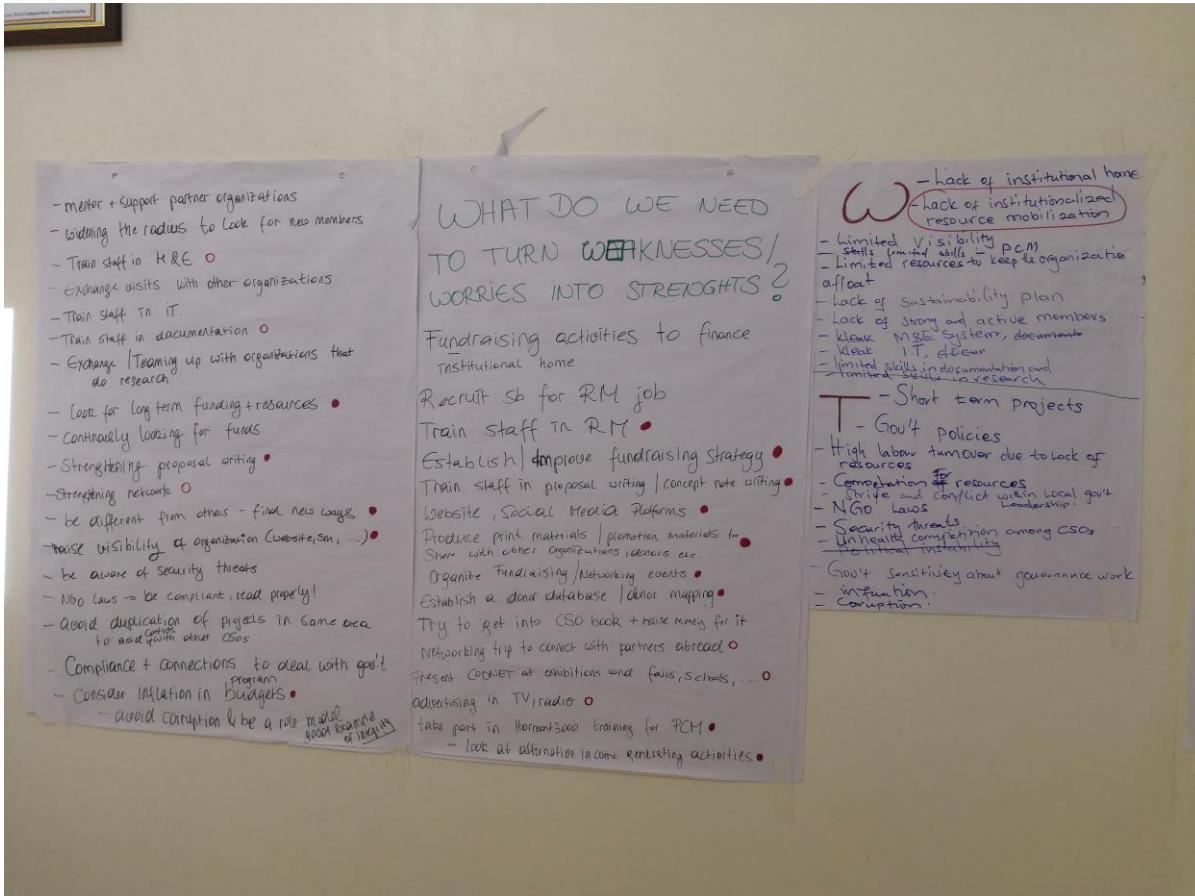 - mentor + support partner organizations
- widening the radius to look for new members
- Train staff in M&E
- Exchange visits with other organizations
- Train staff in IT.
- Train staff in documentation
- Exchange / Teaming up with organizations that
do research
- Look for long term funding + resources
- Continually looking for funds
- Strengthening proposal writing
- Strengtening network
- be different from others - find new ways
- raise visibility of organization (website, sm, ...)
- be aware of security threats
- NGO laws → be compliant, read properly!
- avoid duplication of projects in same area
to avoid conflict with other CSOs
- Compliance + connections to deal with gov't
- Consider inflation in program budgets
- avoid corruption & be a role model
good example
of integrity
WHAT DO WE NEED
TO TURN WEAKNESSES/
WORRIES INTO STRENGHTS?
Fundraising activities to finance
institutional home
Recruit sb for RM job
Train staff in RM
Establish / improve fundraising strategy
Train staff in proposal writing / concept note writing
Website, Social Media Platforms
Produce print materials / promotion materials to
share with other organizations, donors etc.
Organize Fundraising / Networking events
Establish a donor database / donor mapping
Try to get into CSO book + raise money for it
Networking trip to connect with partners abroad
Present CODNET at exhibitions and fairs, schools, ...
advertising in TV, radio
take part in training for PCM
- Look at alternative income generating activities
W
- Lack of institutional home
- Lack of institutionalized
resource mobilization
- Limited visibility
- Skills limited skills - PCM
- Limited resources to keep the organization
afloat
- Lack of sustainability plan
- Lack of strong and active members
- Weak M&E System, document
- Weak I.T, docum
- limited skills in documentation and
- limited skills in research
T
- Short term projects
- Gov't policies
- High labour turnover due to lack of
resources
- Competation for resources
- Strive and conflict within Local gov't
Leadership.
- NGO Laws
- Security threats.
- Unhealth competition among CSOs
- Political instability
- Gov't sensitivity about governance work
- infuation.
- Coruption.